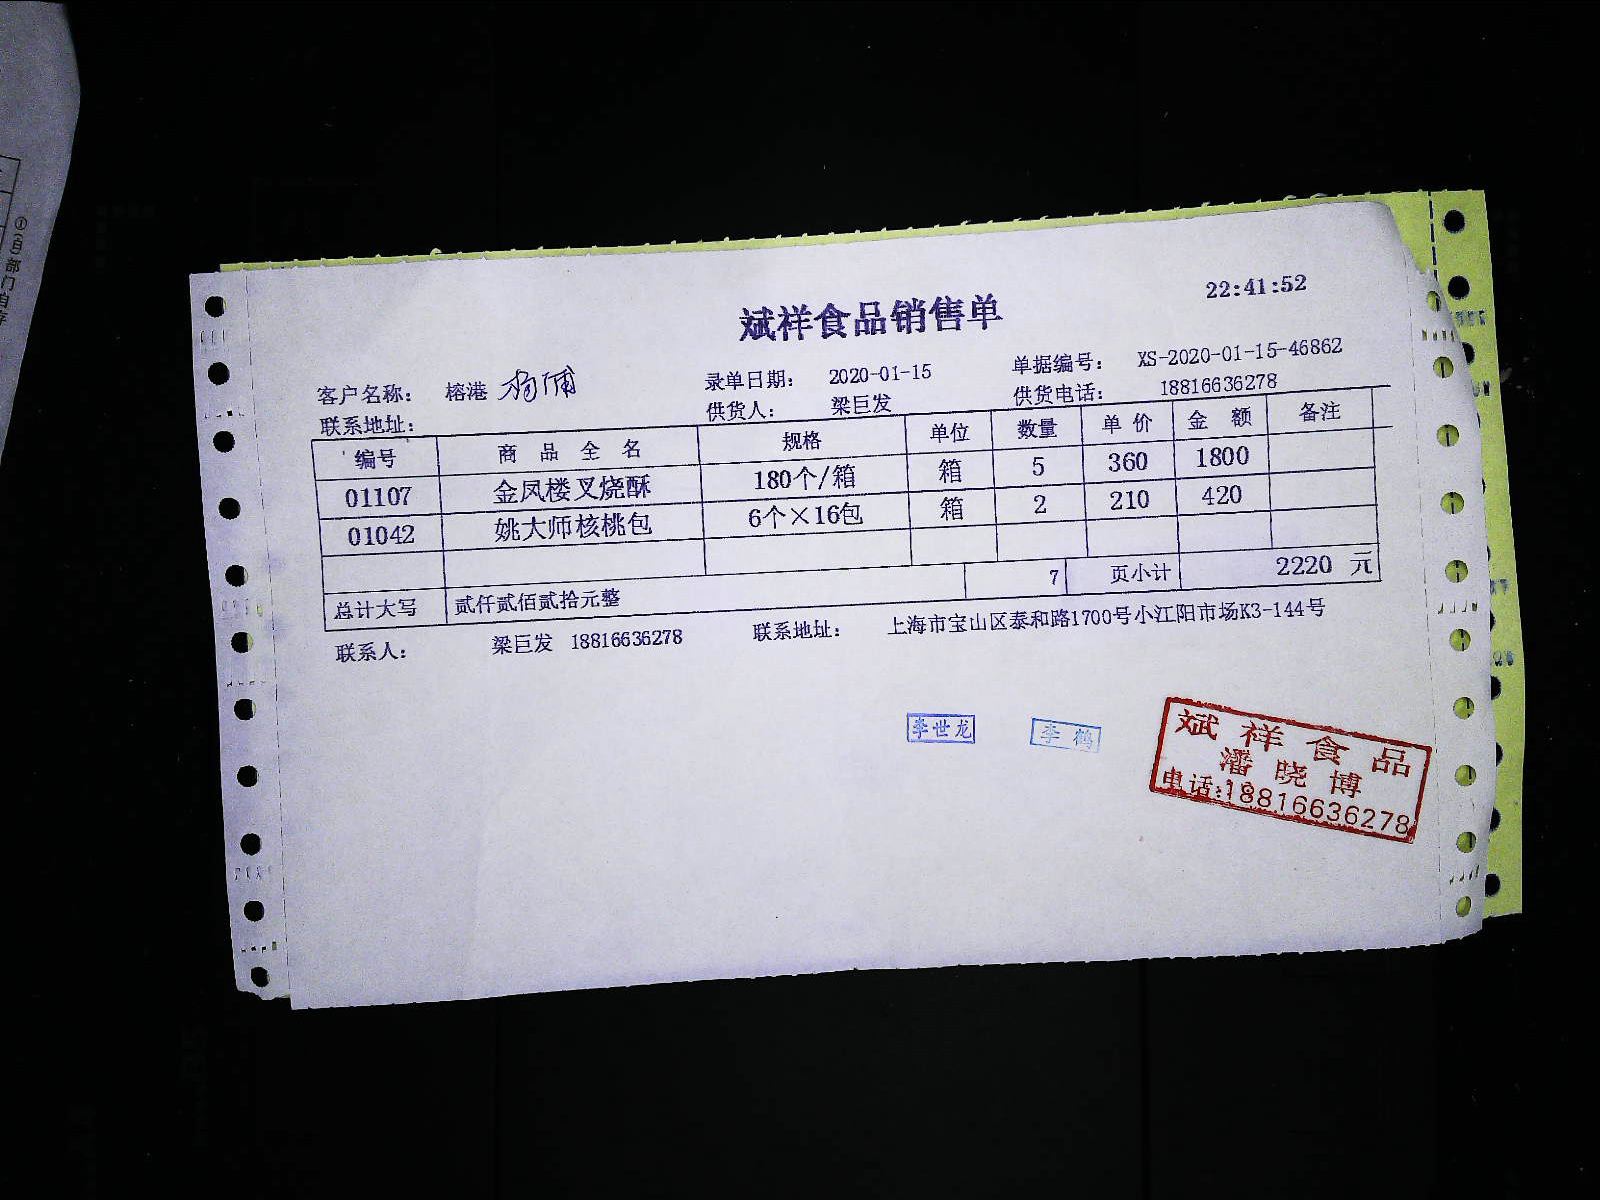 22:41:52
斌祥食品销售单
客户名称： 榕港 杨浦 录单日期： 2020-01-15 单据编号： XS-2020-01-15-46862
联系地址： 供货人： 梁巨发 供货电话： 18816636278
编号 商品全名 规格 单位 数量 单价 金额 备注
01107 金凤楼叉烧酥 180个/箱 箱 5 360 1800
01042 姚大师核桃包 6个×16包 箱 2 210 420
总计大写 贰仟贰佰贰拾元整 7 页小计 2220 元
联系人： 梁巨发 18816636278 联系地址： 上海市宝山区泰和路1700号小江阳市场K3-144号
李世龙 李鹤
斌祥食品
潘晓博
电话:18816636278
①(白)部门自存